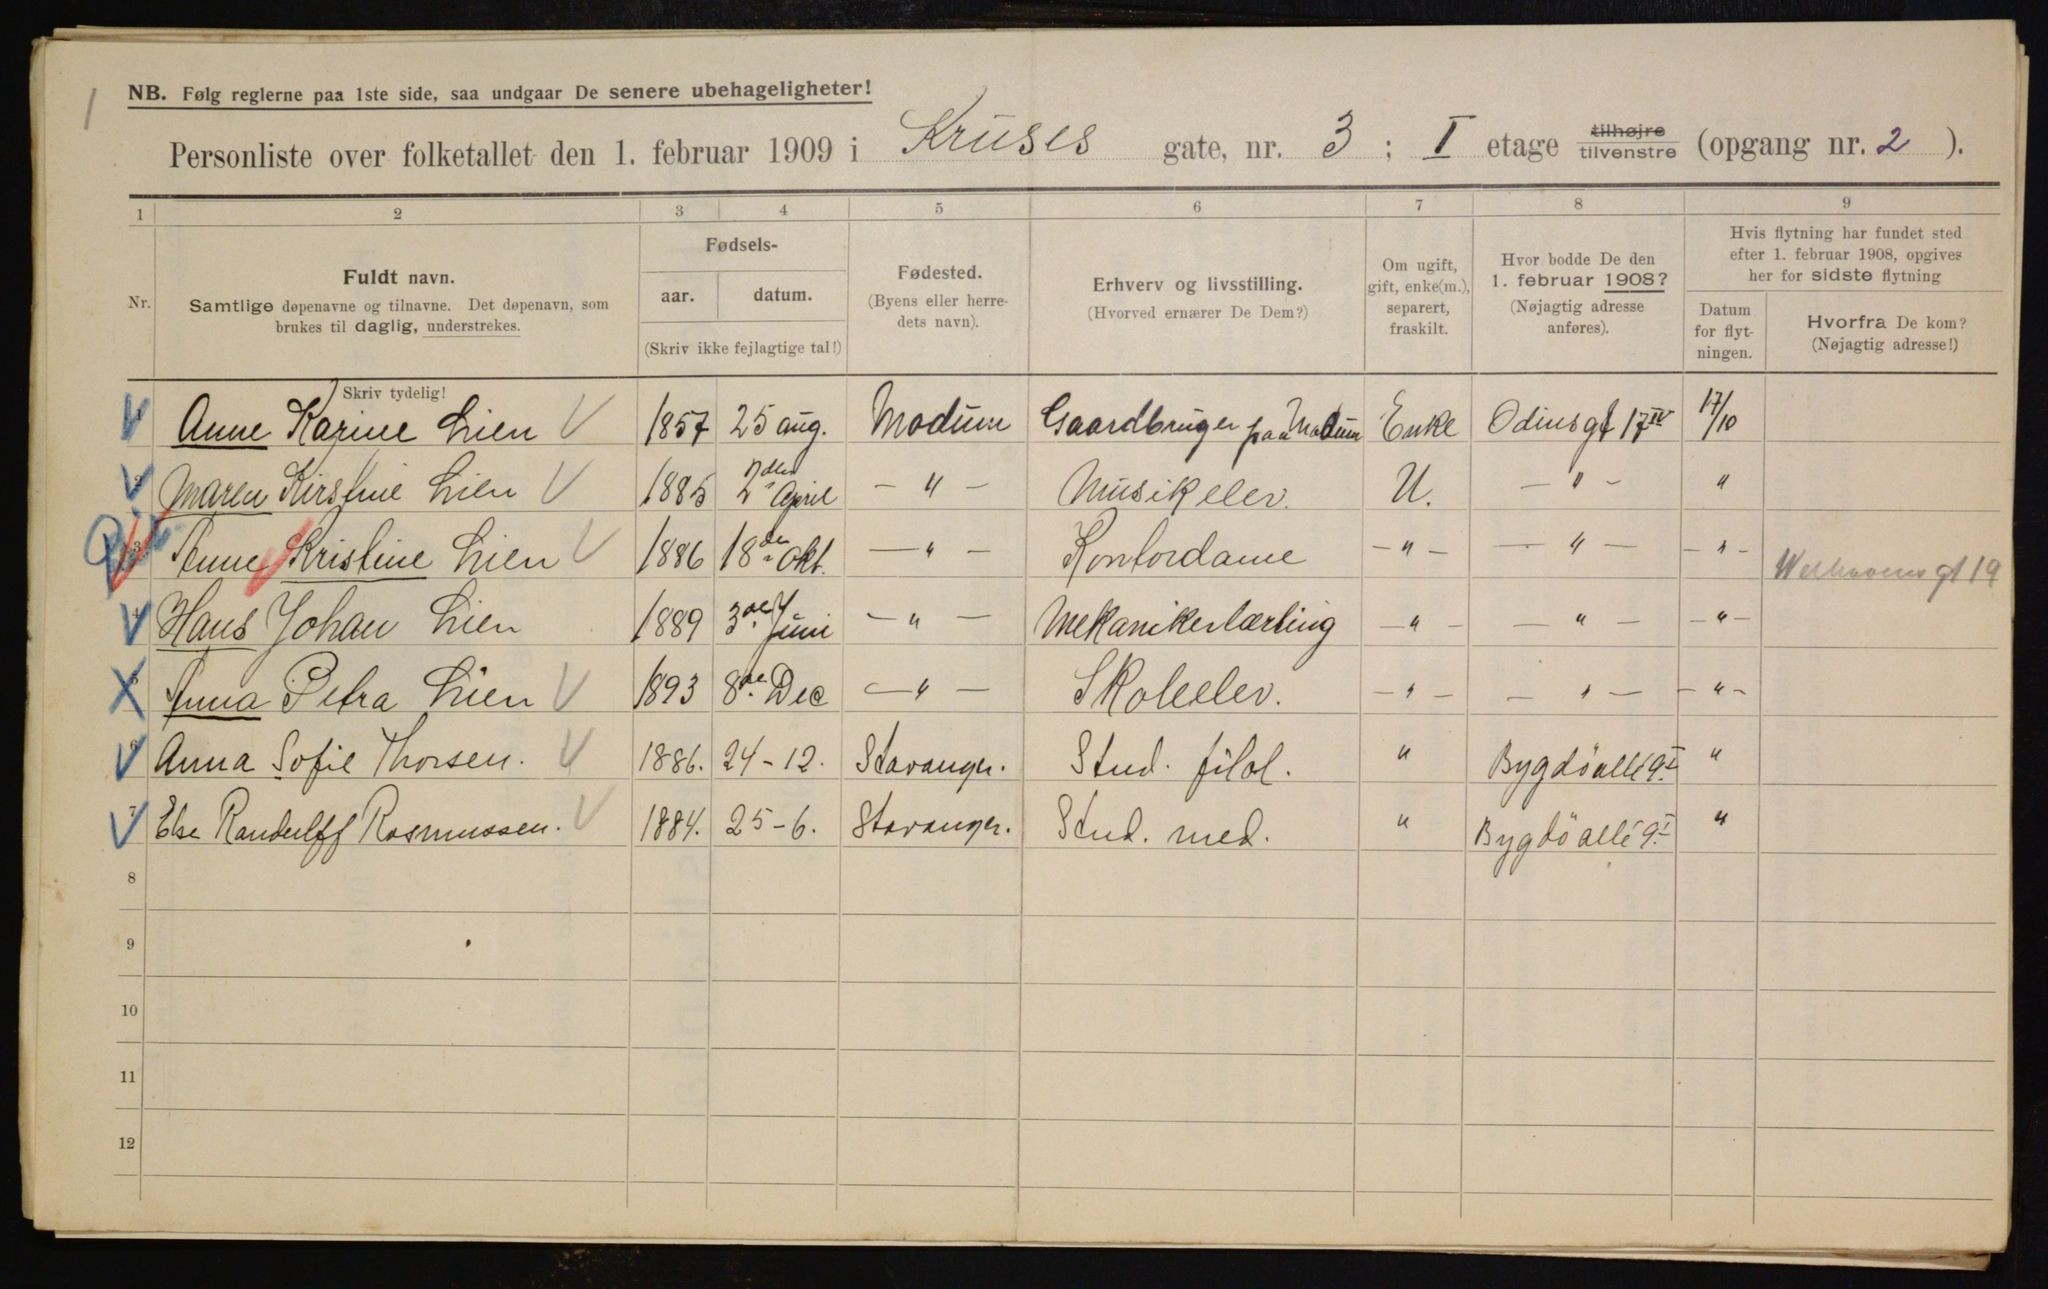 1
NB. Følg reglerne paa 1ste side, saa undgaar De senere ubehageligheter!
Personliste over folketallet den 1. februar 1909 i Kruses gate, nr. 3 ; I etage tilhøjre tilvenstre (opgang nr. 2 ).
1 2 3 4 5 6 7 8 9
Nr.
Fuldt navn.
Samtlige døpenavne og tilnavne. Det døpenavn, som
brukes til daglig, understrekes.
Skriv tydelig!
Fødsels-
aar. datum.
(Skriv ikke fejlagtige tal!)
Fødested.
(Byens eller herre-
dets navn).
Erhverv og livsstilling.
(Hvorved ernærer De Dem?)
Om ugift,
gift, enke(m.),
separert,
fraskilt.
Hvor bodde De den
1. februar 1908?
(Nøjagtig adresse
anføres).
Hvis flytning har fundet sted
efter 1. februar 1908, opgives
her for sidste flytning
Datum
for flyt-
ningen.
Hvorfra De kom?
(Nøjagtig adresse!)
1 Anne Karine Lien 1857 25 aug. Modum Gaardbruger paa Modum Enke Odinsgt 17 IV 17/10
2 Maren Kirstine Lien 1885 2den April - " - Musikelev. U. - " - "
3 Anne Kristine Lien 1886 18de Okt. - " - Kontordame - " - - " - - " - Welhavens gt 19
4 Hans Johan Lien 1889 3de Juni - " - Mekanikerlærling - " - - " - - " -
5 Anna Petra Lien 1893 8de Dec - " - Skoleelev. - " - - " - - " -
6 Anna Sofie Thorsen. 1886. 24-12. Stavanger. Stud. filol. " Bygdöallé 9 I "
7 Else Randulff Rasmussen. 1884. 25-6. Stavanger. Stud. med. " Bygdö allé 9 I "
8
9
10
11
12